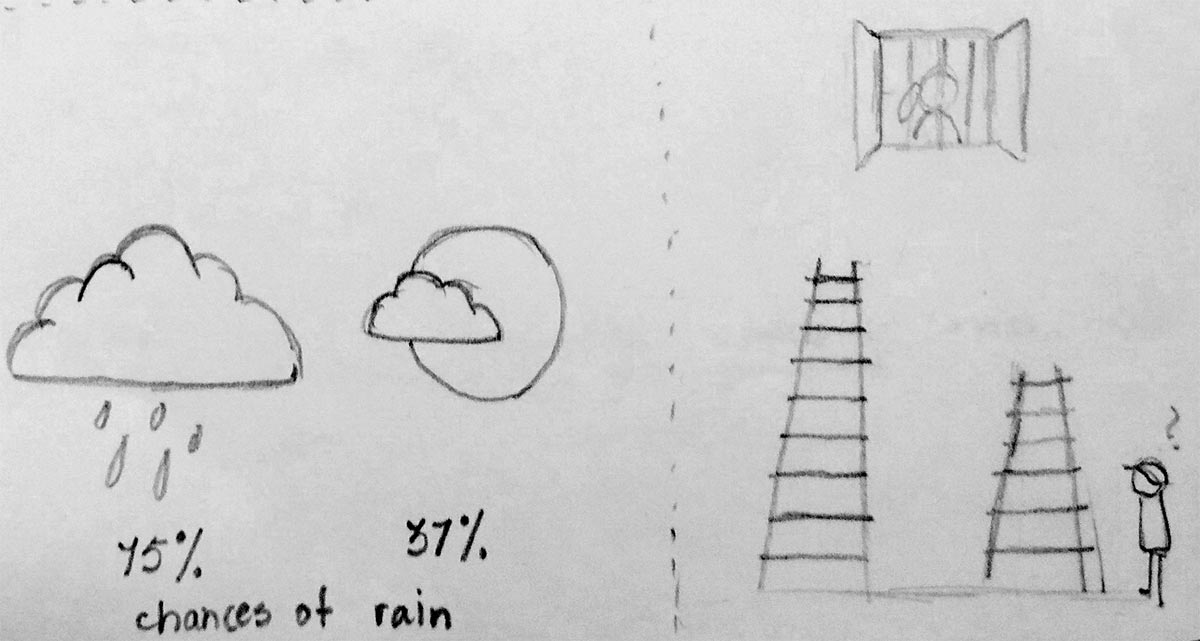 ?
75% 37%
chances of rain